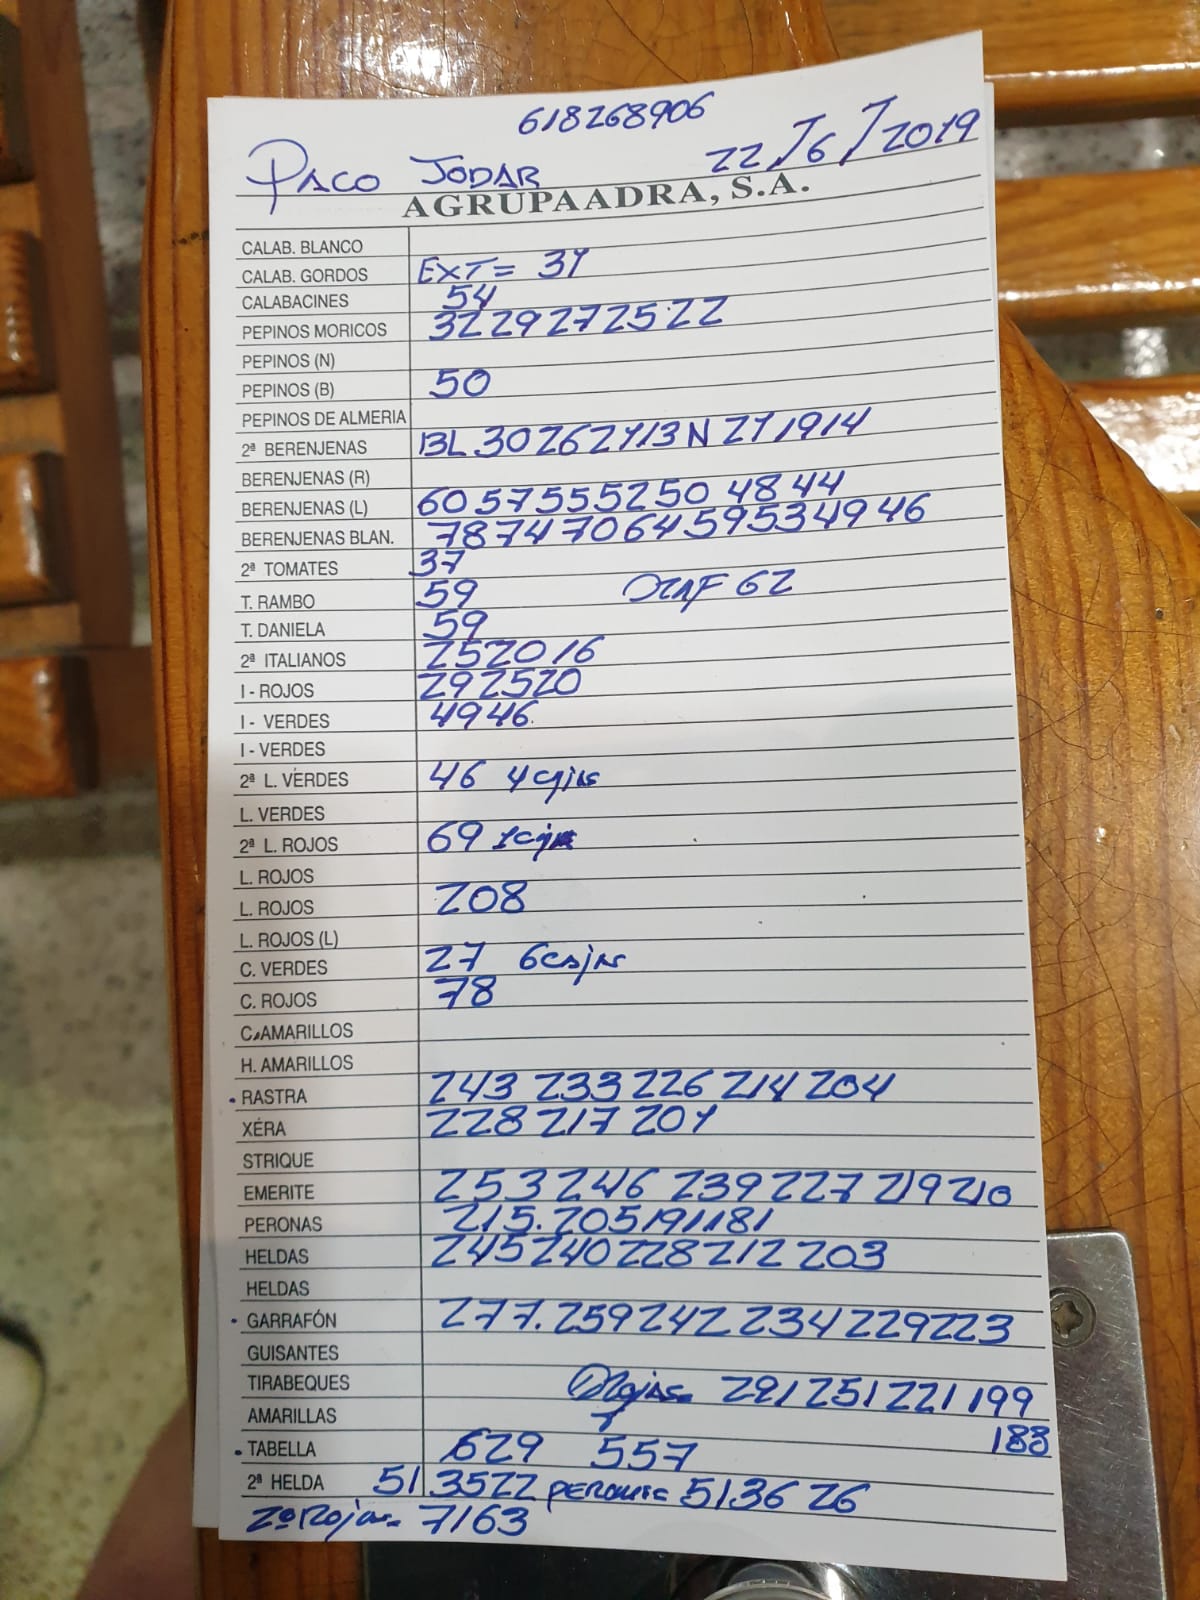 618268906
PACO JODAR 22/6/2019
AGRUPAADRA, S.A.
CALAB. BLANCO
CALAB. GORDOS EXT= 31
CALABACINES 54
PEPINOS MORICOS 32 29 27 25 22
PEPINOS (N)
PEPINOS (B) 50
PEPINOS DE ALMERIA
2ª BERENJENAS BL 30 26 21 13 N 21 19 14
BERENJENAS (R)
BERENJENAS (L) 60 57 55 52 50 48 44
BERENJENAS BLAN. 78 74 70 64 59 53 49 46
2ª TOMATES 37
T. RAMBO 59 62
T. DANIELA 59
2ª ITALIANOS 25 20 16
I - ROJOS 29 25 20
I - VERDES 49 46
I - VERDES
2ª L. VERDES 46 4 cajas
L. VERDES
2ª L. ROJOS 69 1 caja
L. ROJOS
L. ROJOS 208
L. ROJOS (L)
C. VERDES 27 6 cajas
C. ROJOS 78
C. AMARILLOS
H. AMARILLOS
RASTRA 243 233 226 214 204
XÉRA 228 217 201
STRIQUE
EMERITE 253 246 239 227 219 210
PERONAS 215. 205 191 181
HELDAS 245 240 228 212 203
HELDAS
GARRAFÓN 277. 259 242 234 229 223
GUISANTES
TIRABEQUES Rojas= 291 251 221 199
AMARILLAS 183
TABELLA 629 557
2ª HELDA 51 35 22 perona= 51 36 26
2ª Rojas= 71 63